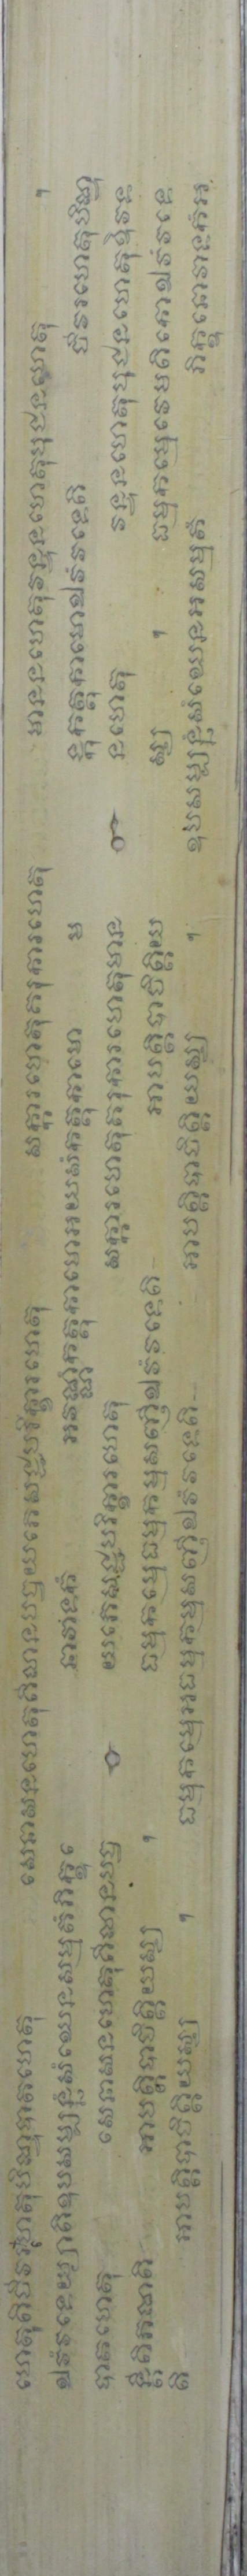 ហេតុតិចីវរហេតុបិណ្ឌបាតហេតុ សេនាសនហេតុគិលានបច្ចយភេសជ្ជបរិក្ខារហេតុ សក្ការហេតុគរុការហេតុ មាននហេតុវន្ទនហេតុបុជនហេតុ ។
ឯវំវទេយ្យាតិឧបសម្បន្នំសំឃេនសម្មតំភិក្ខុ នោវាទកំ អវណ្ណំកត្តុកាមោអយសំកត្តុកាមោ ម ង្កុកត្តុកាមោឯវំវទេតិ ចីវរហេតុបិណ្ឌ
បាតហេតុ សេនាសនហេតុគិលានបច្ច យភេសជ្ជបរិក្ខារហេតុ សក្ការហេតុគរុការហេតុមាន នហេតុ វន្ទនហេតុបុជនហេតុឱវទ
ន្តីតិភណតិ អាបត្តិបាចិត្តិយស្ស ។ ធម្មកម្មេធម្មកម្មសញ្ញីឯវំវទេតិ អាបត្តិបាចិត្តិយ ស្ស ។ ធម្មកម្មេវេមតិកោឯវំវទេ
តិ អាបត្តិបាចិត្តិយស្ស ។ ធម្មកម្មេអធម្មកម្មសញ្ញីឯវំវទេតិ អាបត្តិបាចិត្តិយស្ស ។ ឧបសម្បន្នំសំឃេនអសម្មតំ ភិក្ខុនោវាទកំអ